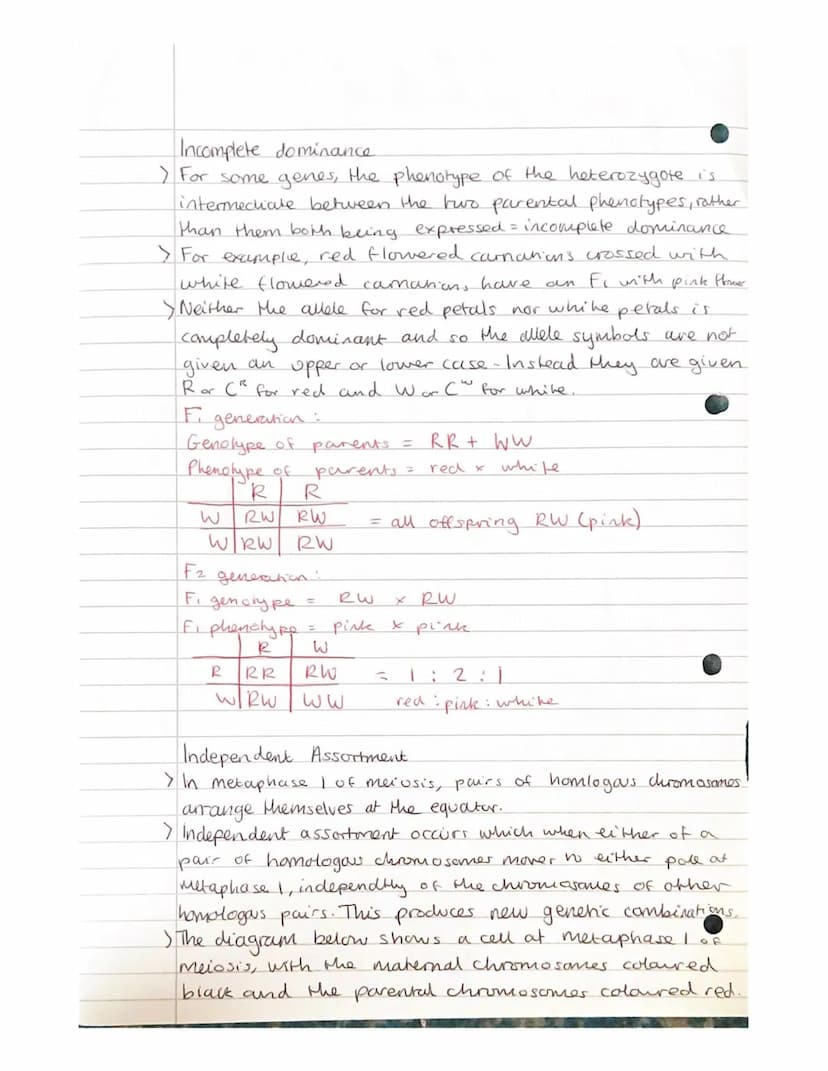 Incomplete dominance
> For some genes, the phenotype of the heterozygote is
intermediate between the two parental phenotypes, rather
than them both being expressed = incomplete dominance
> For example, red flowered carnations crossed with
white flowered carnations, have an F1 with pink flower
> Neither the allele for red petals nor white petals is
completely dominant and so the allele symbols are not
given an upper or lower case - Instead they are given
R or Cᴿ for red and W or Cᵂ for white.
F1 generation :
Genotype of parents = RR + WW
Phenotype of parents = red x white
R R
W RW RW = all offspring RW (pink)
W RW RW
F2 generation :
F1 genotype = RW x RW
F1 phenotype = pink x pink
R W
R RR RW = 1 : 2 : 1
W RW WW red : pink : white
Independent Assortment
> In metaphase 1 of meiosis, pairs of homlogous chromosomes
arrange themselves at the equator.
> Independent assortment occurs which when either of a
pair of homologous chromosomes moves to either pole at
metaphase 1, independtly of the chromosomes of other
homologous pairs. This produces new genetic combinations.
> The diagram below shows a cell at metaphase 1 of
meiosis, with the maternal chromosomes coloured
black and the parental chromosomes coloured red.